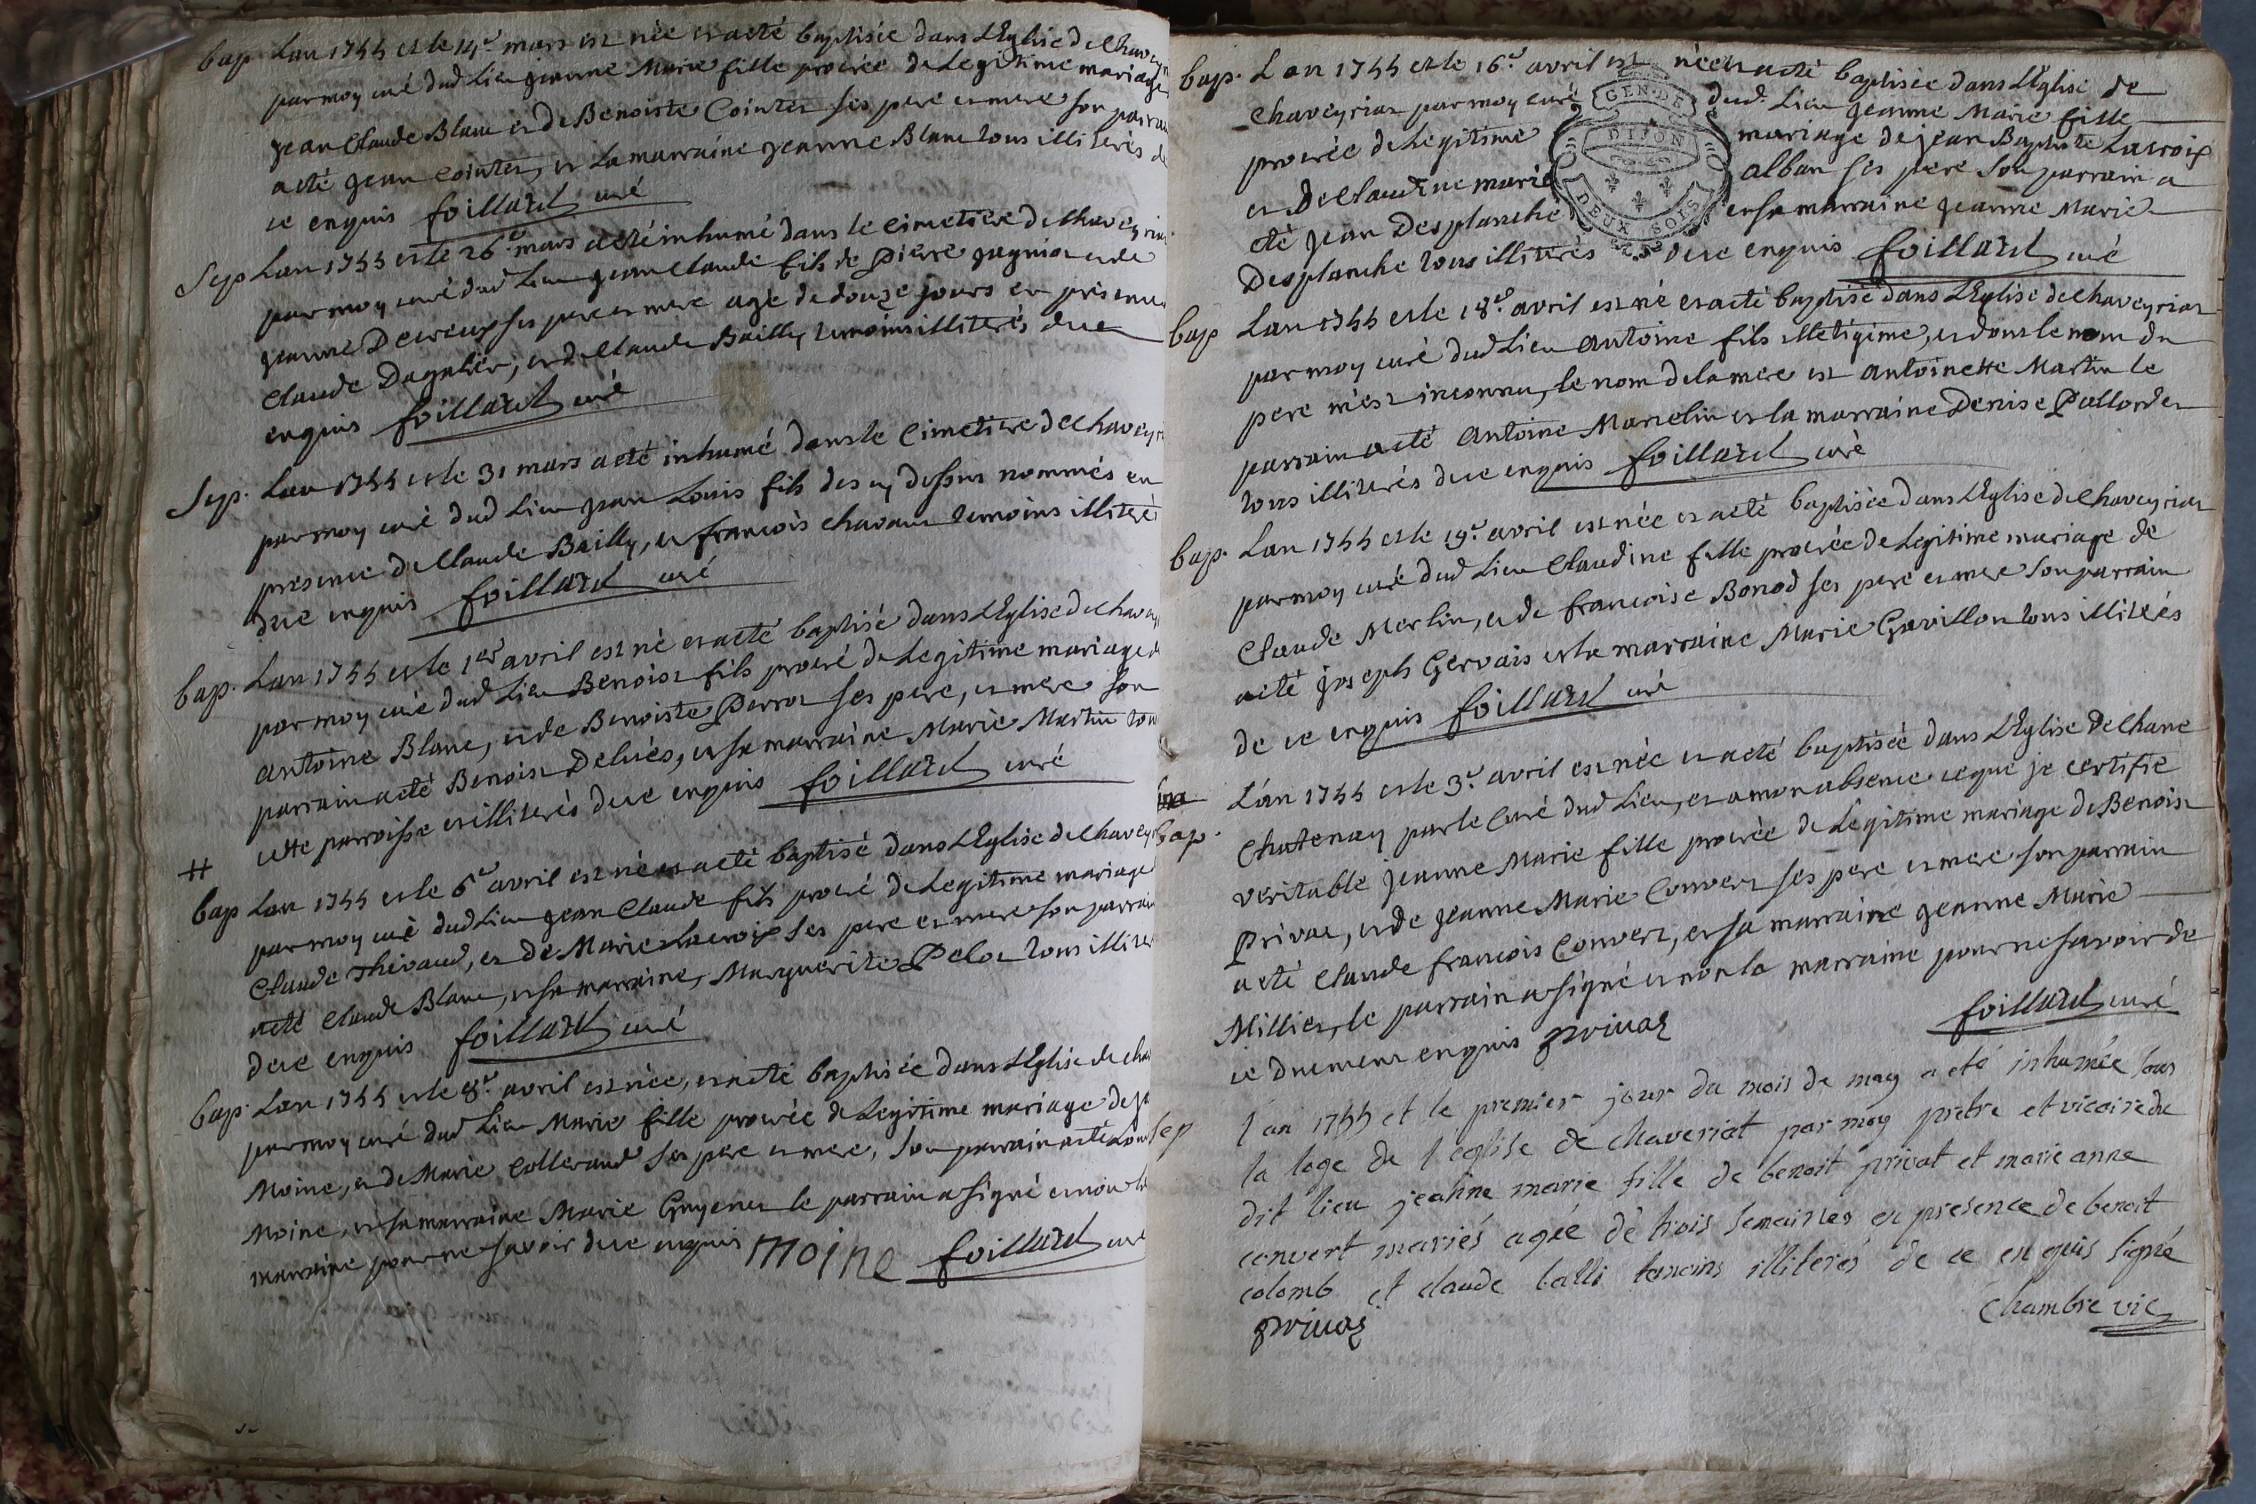 bap. Lan 1755 et le 14e mars est née et a eté baptisée dans L'Eglise de Chavey
par moy curé dud Lieu jeanne Marie fille procrée de Legitime mariage
jean Claude Blanc et de Benoiste Cointet ses pere et mere son parrain
a eté jean Cointet, et La marraine jeanne Blanc tous illiterés de
ce enquis foillard curé
Sep Lan 1755 et le 26e mars a eté inhumé dans le Cimetiere de Chaveyria
par moy curé dud Lieu jean Claude fils de Pierre et de
jeanne ses pere et mere agé de douze jours en presence
Claude Dagalier, et de Claude Bailly temoins illiterés de ce
enquis foillard curé
Sep. Lan 1755 et le 31 mars a eté inhumé dans le Cimetiere de Chavey
par moy curé dud Lieu jean Louis fils des cy dessus nommés en
presence de Claude Bailly, et francois Chavant temoins illiteré
de ce enquis foillard curé
bap. Lan 1755 et le 1er avril est né et a eté baptisé dans L'Eglise de Chavey
par moy curé dud Lieu Benoist fils procré de Legitime mariage de
antoine Blanc, et de Benoiste Perrot ses pere, et mere son
parrain a eté Benoist et sa marraine Marie Martin tou
cette parroisse et illiterés de ce enquis foillard curé
#
bap Lan 1755 et le 6e avril est né et a eté baptisé dans L'Eglise de Chavey
par moy curé dud Lieu jean Claude fils procré de Legitime mariage
Claude Thevaud, et de Marie Lacroix ses pere et mere son parrain
a eté Claude Blanc, et sa marraine, Marguerite Pelot tous illiter
de ce enquis foillard curé
bap. Lan 1755 et le 8e avril est née, et a eté baptisée dans L'Eglise de cha
par moy curé dud Lieu Marie fille procrée de Legitime mariage de
Moine, et de Marie Collerand ses pere et mere, son parrain a eté
Moine, et sa marraine Marie Guyenet le parrain a signé et non la
marraine pour ne savoir de ce enquis moine foillard curé
bap. Lan 1755 et le 16e avril est née et a eté baptisée dans L'Eglise de
Chaveyriat par moy curé dud. Lieu jeanne Marie fille
GEN. DE
DIJON
DEUX SOLS
procrée de Legitime mariage de jean Baptiste Lacroix
et de Claudine marie alban ses pere son parrain a
eté jean Desplanche et sa marraine jeanne Marie
Desplanche tous illiterés de ce enquis foillard curé
bap Lan 1755 et le 18e avril est né et a eté baptisé dans L'Eglise de Chaveyriat
par moy curé dud Lieu antoine fils illetigime, et dont le nom du
pere m'est inconnu, le nom de la mere est antoinette Martin le
parrain a eté antoine Marcelin et la marraine Denise
tous illiterés de ce enquis foillard curé
bap. Lan 1755 et le 19e avril est née et a eté baptisée dans L'Eglise de Chaveyriat
par moy curé dud Lieu Claudine fille procrée de Legitime mariage de
Claude Merlin, et de francoise Bonod ses pere et mere son parrain
a eté joseph Gervais et la marraine Marie Gavillon tous illiterés
de ce enquis foillard curé
bap. L'an 1755 et le 3e avril est née et a eté baptisée dans L'Eglise de Chane
Chatenay par le Curé dud Lieu, et a mon absence ce que je certifie
veritable jeanne Marie fille procrée de Legitime mariage de Benoist
Privat, et de jeanne Marie Convert ses pere et mere son parrain
a eté Claude francois Convert, et sa marraine jeanne Marie
Millier, le parrain a signé et non la marraine pour ne savoir de
ce duement enquis privat foillard curé
sep l an 1755 et le premier jour du mois de may a eté inhumée sous
la loge de l eglise de chaveriat par moy pretre et vicaire du
dit lieu jeanne marie fille de benoit privat et marie anne
convert mariés agée de trois semaines en presence de benoit
colomb et claude balli temoins illiterés de ce enquis signé
privat chambre vic